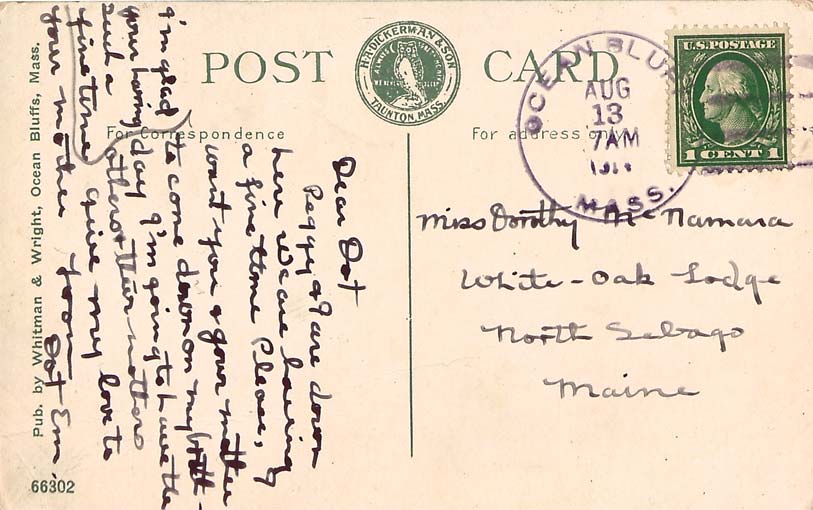 POST CARD
H.A. DICKERMAN & SON
TAUNTON, MASS.
For Correspondence
For address only
OCEAN BLUFF
AUG
13
7AM
MASS.
U.S. POSTAGE
1 CENT 1
Miss Dorothy McNamara
White-Oak Lodge
North Sebago
Maine
Dear Dot
Peggy & I are down
here we are having
a fine time Please, I
want you & your mother
to come down on my birth-
day I'm going to have the
others & their mothers
give my love to
your mother from Dot Em.
I'm glad
your having
such a
fine time
Pub. by Whitman & Wright, Ocean Bluffs, Mass.
66302